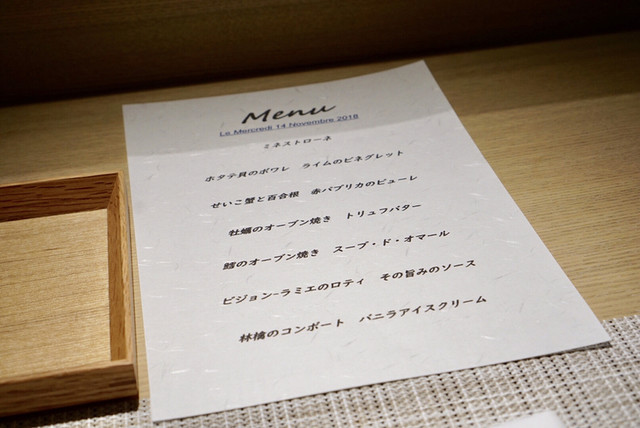 Menu
Le Mercredi 14 Novembre 2018
ミネストローネ
ホタテ貝のポワレ　ライムのビネグレット
せいこ蟹と百合根　赤パプリカのピューレ
牡蠣のオーブン焼き　トリュフバター
鱈のオーブン焼き　スープ・ド・オマール
ピジョン-ラミエのロティ　その旨みのソース
林檎のコンポート　バニラアイスクリーム